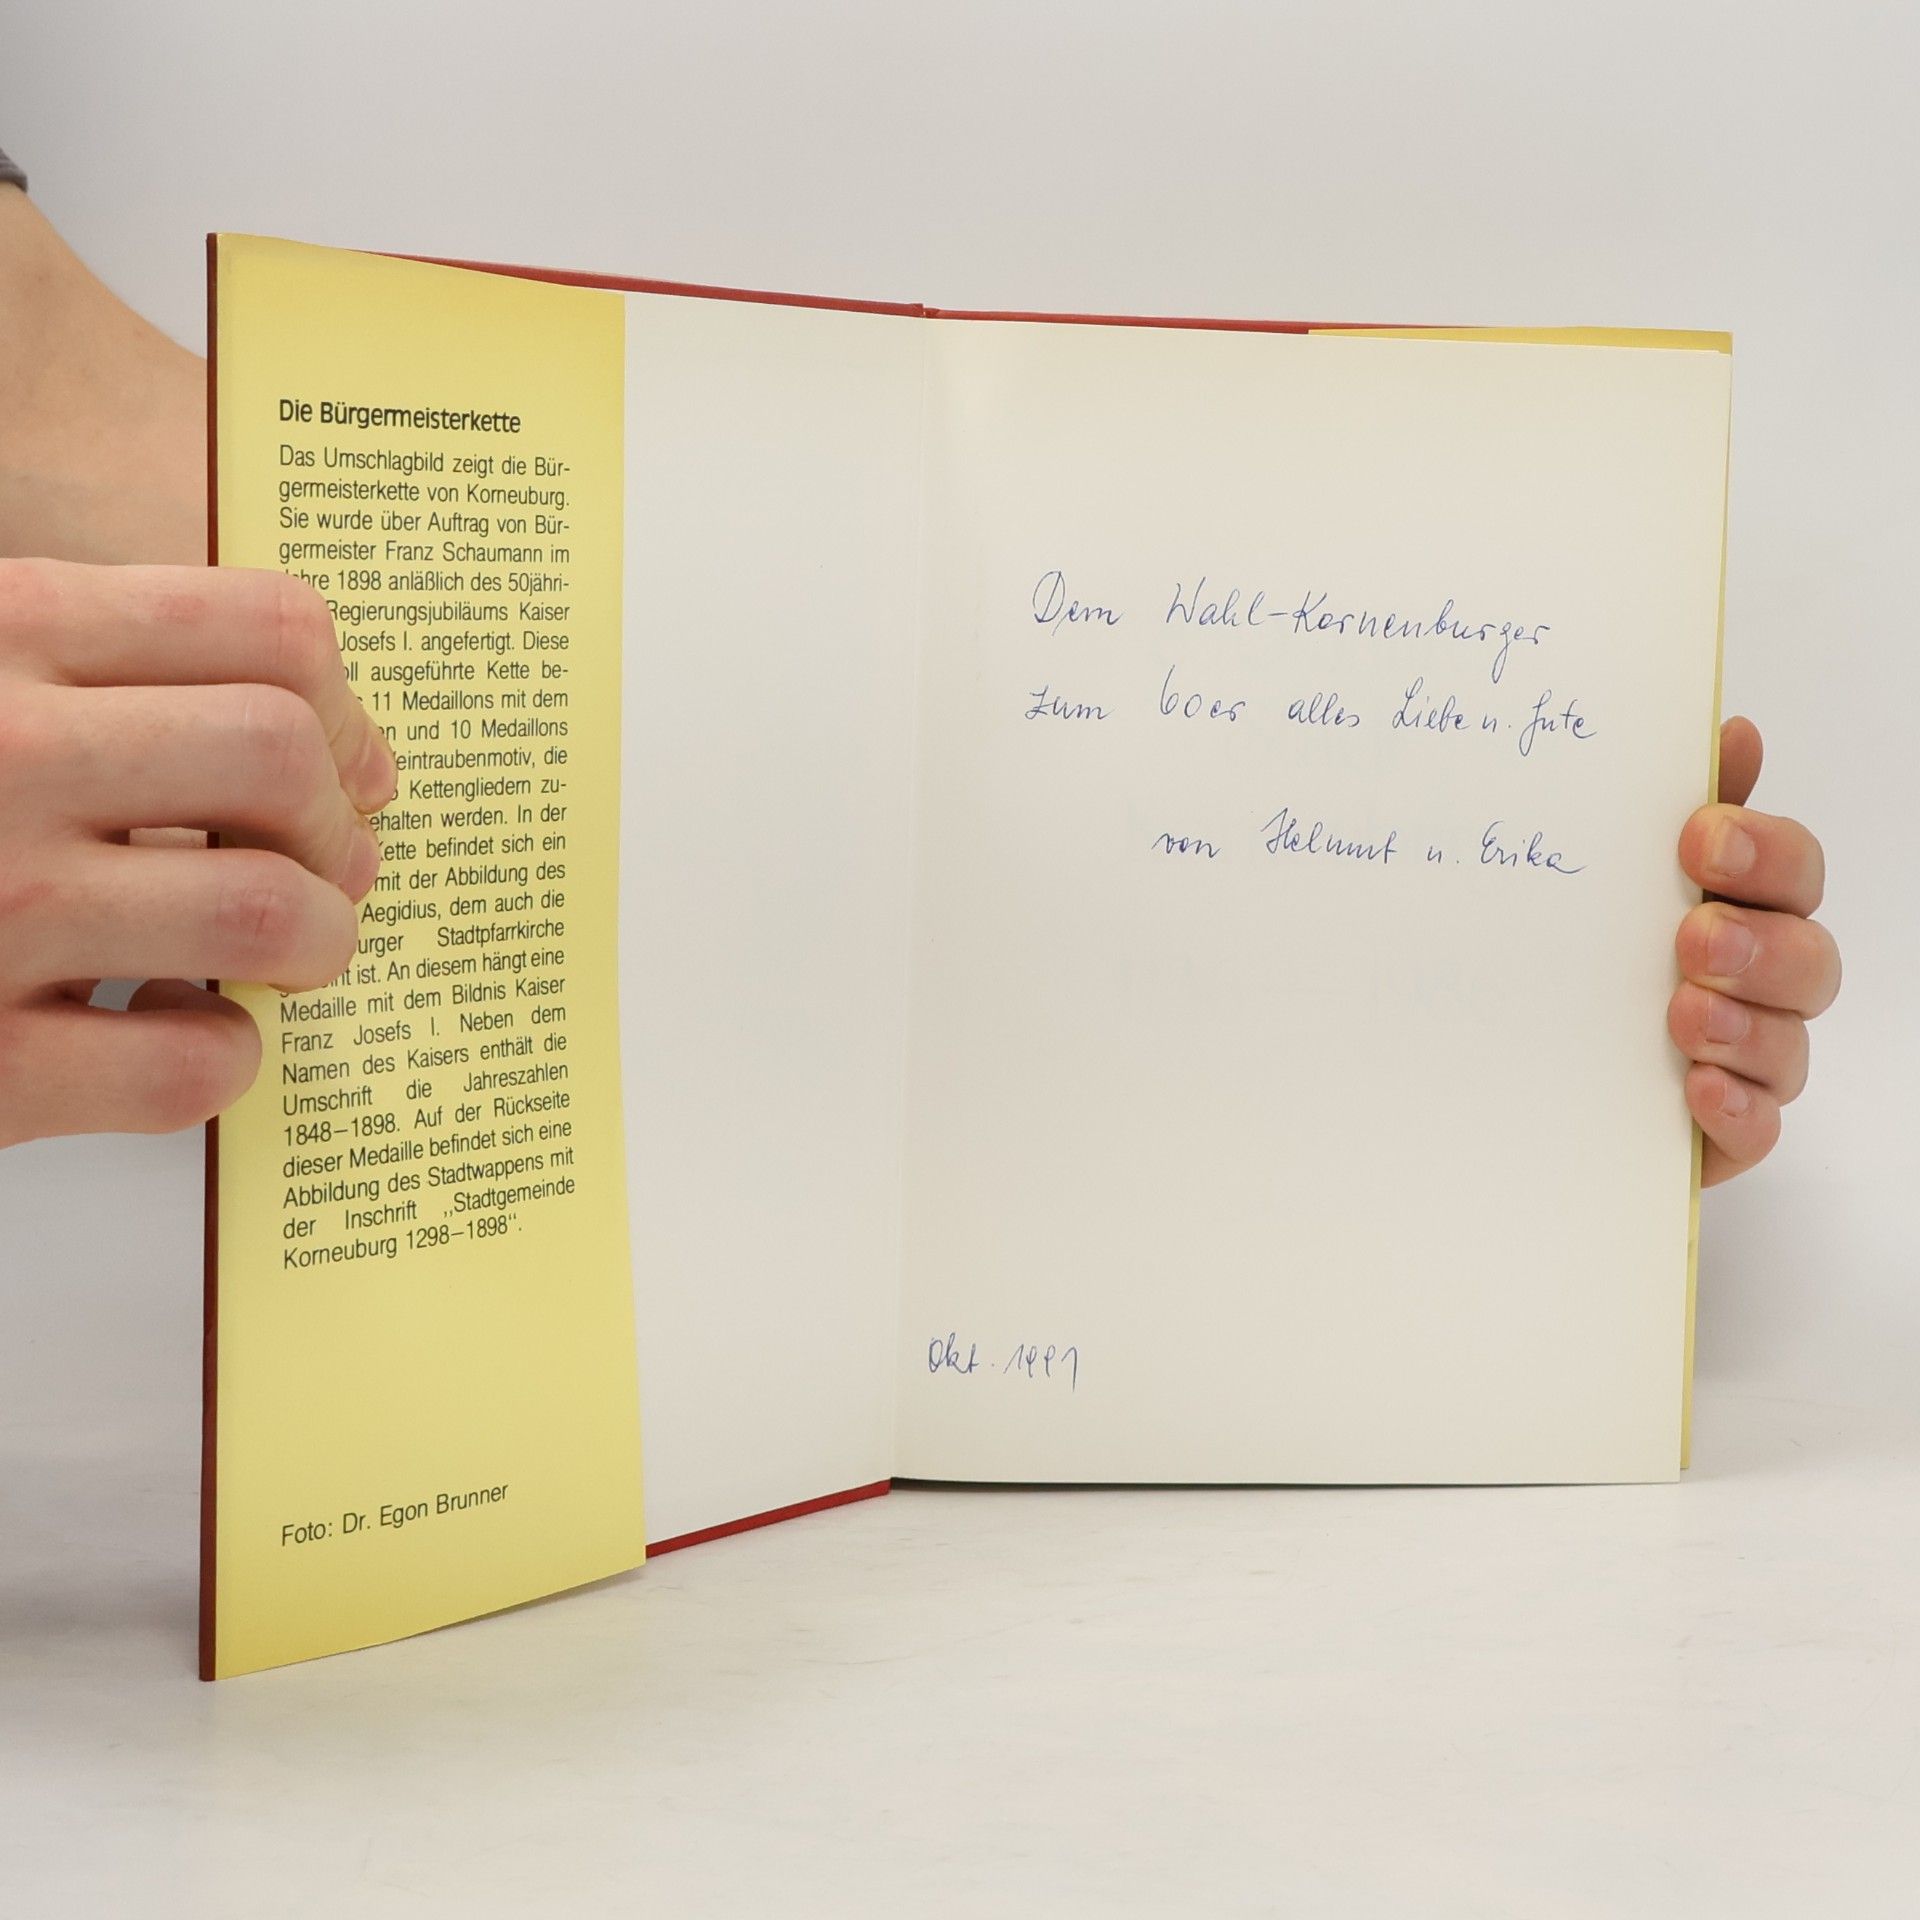 Die Bürgermeisterkette
Das Umschlagbild zeigt die Bür-
germeisterkette von Korneuburg.
Sie wurde über Auftrag von Bür-
germeister Franz Schaumann im
1898 anläßlich des 50jähri-
Regierungsjubiläums Kaiser
Josefs I. angefertigt. Diese
ausgeführte Kette be-
11 Medaillons mit dem
und 10 Medaillons
die
Kettengliedern zu-
werden. In der
befindet sich ein
mit der Abbildung des
Aegidius, dem auch die
Stadtpfarrkirche
ist. An diesem hängt eine
Medaille mit dem Bildnis Kaiser
Franz Josefs I. Neben dem
Namen des Kaisers enthält die
Umschrift die Jahreszahlen
1848–1898. Auf der Rückseite
dieser Medaille befindet sich eine
Abbildung des Stadtwappens mit
der Inschrift „Stadtgemeinde
Korneuburg 1298–1898“.
Foto: Dr. Egon Brunner
Dem Wahl-Korneuburger
zum 60er alles Liebe u. Gute
von Helmut u. Erika
Okt. 1991